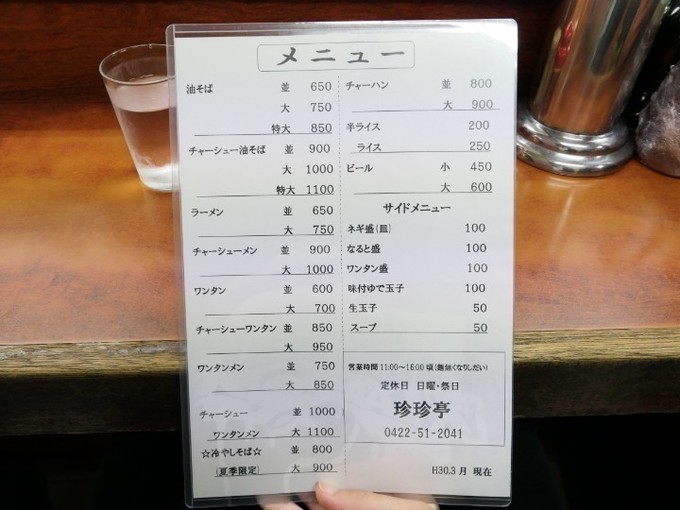 メニュー
油そば 並 650
大 750
特大 850
チャーシュー油そば 並 900
大 1000
特大 1100
ラーメン 並 650
大 750
チャーシューメン 並 900
大 1000
ワンタン 並 600
大 700
チャーシューワンタン 並 850
大 950
ワンタンメン 並 750
大 850
チャーシュー 並 1000
ワンタンメン 大 1100
☆冷やしそば☆ 並 800
(夏季限定) 大 900
チャーハン 並 800
大 900
半ライス 200
ライス 250
ビール 小 450
大 600
サイドメニュー
ネギ盛(皿) 100
なると盛 100
ワンタン盛 100
味付ゆで玉子 100
生玉子 50
スープ 50
営業時間 11:00～16:00 頃(麺無くなりしだい)
定休日 日曜・祭日
珍珍亭
0422-51-2041
H30,3月 現在